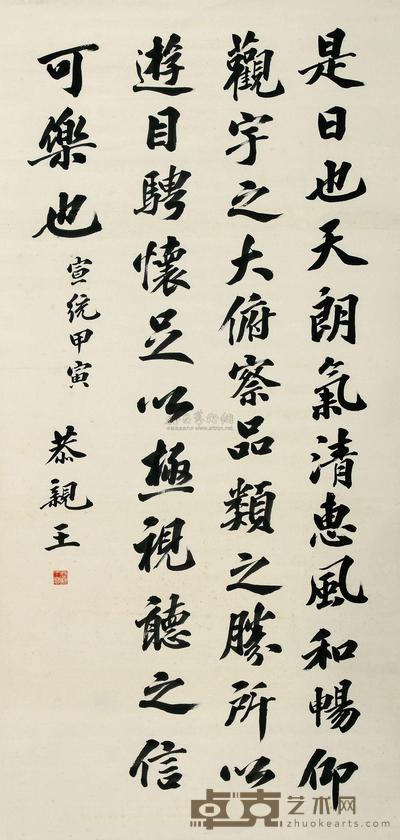 是日也天朗氣清惠風和暢仰
觀宇之大俯察品類之勝所以
遊目騁懷足以極視聽之信
可樂也
宣統甲寅
恭親王
卓克艺术网
zhuokearts.com